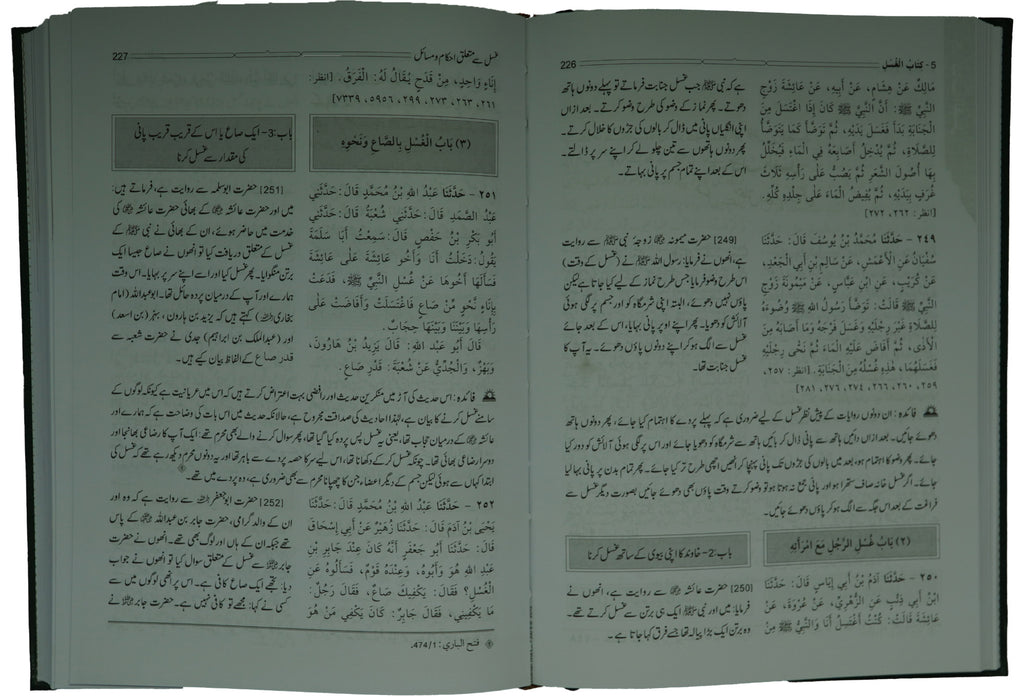 5 - كِتَابُ الْغُسْلِ
226
مَالِكٌ عَنْ هِشَامٍ، عَنْ أَبِيهِ، عَنْ عَائِشَةَ زَوْجِ
النَّبِيِّ ﷺ: أَنَّ النَّبِيَّ ﷺ كَانَ إِذَا اغْتَسَلَ مِنَ
الْجَنَابَةِ بَدَأَ فَغَسَلَ يَدَيْهِ، ثُمَّ تَوَضَّأَ كَمَا يَتَوَضَّأُ
لِلصَّلَاةِ، ثُمَّ يُدْخِلُ أَصَابِعَهُ فِي الْمَاءِ فَيُخَلِّلُ
بِهَا أُصُولَ الشَّعَرِ ثُمَّ يَصُبُّ عَلَى رَأْسِهِ ثَلَاثَ
غُرَفٍ بِيَدَيْهِ، ثُمَّ يُفِيضُ الْمَاءَ عَلَى جِلْدِهِ كُلِّهِ.
[انظر: ٢٦٢، ٢٧٢]
ہے کہ نبی ﷺ جب غسل جنابت فرماتے تو پہلے دونوں ہاتھ
دھوتے۔ پھر نماز کے وضو کی طرح وضو کرتے۔ بعد ازاں
اپنی انگلیاں پانی میں ڈال کر بالوں کی جڑوں کا خلال کرتے۔
پھر دونوں ہاتھوں سے تین چلو لے کر اپنے سر پر ڈالتے۔
اس کے بعد اپنے تمام جسم پر پانی بہاتے۔
٢٤٩ - حَدَّثَنَا مُحَمَّدُ بْنُ يُوسُفَ قَالَ: حَدَّثَنَا
سُفْيَانُ عَنِ الْأَعْمَشِ، عَنْ سَالِمِ بْنِ أَبِي الْجَعْدِ،
عَنْ كُرَيْبٍ، عَنِ ابْنِ عَبَّاسٍ، عَنْ مَيْمُونَةَ زَوْجِ
النَّبِيِّ ﷺ قَالَتْ: تَوَضَّأَ رَسُولُ اللهِ ﷺ وُضُوءَهُ
لِلصَّلَاةِ غَيْرَ رِجْلَيْهِ وَغَسَلَ فَرْجَهُ وَمَا أَصَابَهُ مِنَ
الْأَذَى، ثُمَّ أَفَاضَ عَلَيْهِ الْمَاءَ ثُمَّ نَحَّى رِجْلَيْهِ
فَغَسَلَهُمَا، هٰذِهِ غُسْلُهُ مِنَ الْجَنَابَةِ. [انظر: ٢٥٧،
٢٥٩، ٢٦٠، ٢٦٦، ٢٧٤، ٢٧٦، ٢٨١]
[249] حضرت میمونہ ؓ زوجۂ نبی ﷺ سے روایت
ہے، انھوں نے فرمایا: رسول اللہ ﷺ نے (غسل کے وقت)
اسی طرح وضو فرمایا جس طرح نماز کے لیے کرتے تھے لیکن
پاؤں نہیں دھوئے، البتہ اپنی شرمگاہ کو اور جسم پر لگی ہوئی
آلائش کو دھویا۔ پھر اپنے اوپر پانی بہایا، اس کے بعد جائے
غسل سے الگ ہو کر اپنے دونوں پاؤں دھوئے۔ یہ آپ کا
غسل جنابت تھا۔
فائدہ: ان دونوں روایات کے پیش نظر غسل کے لیے ضروری ہے کہ پہلے پردے کا اہتمام کیا جائے، پھر دونوں ہاتھ
دھوئے جائیں۔ بعد ازاں دائیں ہاتھ سے پانی ڈال کر بائیں ہاتھ سے شرمگاہ کو دھویا جائے اور اس پر لگی ہوئی آلائش کو دور کیا
جائے۔ پھر وضو کا اہتمام ہو، بعد میں بالوں کی جڑوں تک پانی پہنچا کر انھیں اچھی طرح تر کیا جائے۔ پھر تمام بدن پر پانی بہا لیا
جائے۔ اگر غسل خانہ صاف ستھرا ہو اور پانی جمع نہ ہوتا ہو تو وضو کرتے وقت پاؤں بھی دھوئے جائیں بصورت دیگر غسل سے
فراغت کے بعد اس جگہ سے الگ ہو کر پاؤں دھوئے جائیں۔
(٢) بَابُ غُسْلِ الرَّجُلِ مَعَ امْرَأَتِهِ
باب: 2- خاوند کا اپنی بیوی کے ساتھ غسل کرنا
٢٥٠ - حَدَّثَنَا آدَمُ بْنُ أَبِي إِيَاسٍ قَالَ: حَدَّثَنَا
ابْنُ أَبِي ذِئْبٍ عَنِ الزُّهْرِيِّ، عَنْ عُرْوَةَ، عَنْ
عَائِشَةَ قَالَتْ: كُنْتُ أَغْتَسِلُ أَنَا وَالنَّبِيُّ ﷺ مِنْ
[250] حضرت عائشہ ؓ سے روایت ہے، انھوں نے
فرمایا: میں اور نبی ﷺ ایک ہی برتن سے غسل کرتے تھے۔
وہ برتن ایک بڑا پیالہ تھا جسے فرق کہا جاتا ہے۔
غسل سے متعلق احکام و مسائل
227
إِنَاءٍ وَاحِدٍ، مِنْ قَدَحٍ يُقَالُ لَهُ: الْفَرَقُ. [انظر:
٢٦١، ٢٦٣، ٢٧٣، ٢٩٩، ٥٩٥٦، ٧٣٣٩]
(٣) بَابُ الْغُسْلِ بِالصَّاعِ وَنَحْوِهِ
باب: 3- ایک صاع یا اس کے قریب قریب پانی
کی مقدار سے غسل کرنا
٢٥١ - حَدَّثَنَا عَبْدُ اللهِ بْنُ مُحَمَّدٍ قَالَ: حَدَّثَنِي
عَبْدُ الصَّمَدِ قَالَ: حَدَّثَنِي شُعْبَةُ قَالَ: حَدَّثَنِي
أَبُو بَكْرِ بْنُ حَفْصٍ قَالَ: سَمِعْتُ أَبَا سَلَمَةَ
يَقُولُ: دَخَلْتُ أَنَا وَأَخُو عَائِشَةَ عَلَى عَائِشَةَ
فَسَأَلَهَا أَخُوهَا عَنْ غُسْلِ النَّبِيِّ ﷺ، فَدَعَتْ
بِإِنَاءٍ نَحْوٍ مِّنْ صَاعٍ فَاغْتَسَلَتْ وَأَفَاضَتْ عَلَى
رَأْسِهَا وَبَيْنَنَا وَبَيْنَهَا حِجَابٌ.
قَالَ أَبُو عَبْدِ اللهِ: قَالَ يَزِيدُ بْنُ هَارُونَ،
وَبَهْزٌ، وَالْجُدِّيُّ عَنْ شُعْبَةَ: قَدْرِ صَاعٍ.
[251] حضرت ابوسلمہ سے روایت ہے، فرماتے ہیں:
میں اور حضرت عائشہ ؓ کے بھائی حضرت عائشہ ؓ کی
خدمت میں حاضر ہوئے، ان کے بھائی نے نبی ﷺ کے
غسل کے متعلق دریافت کیا تو انھوں نے صاع جیسا ایک
برتن منگوایا۔ پھر غسل کیا اور اسے اپنے سر پر بہایا۔ اس وقت
ہمارے اور آپ کے درمیان پردہ حائل تھا۔ ابوعبداللہ (امام
بخاری ؒ) کہتے ہیں کہ یزید بن ہارون، بہز (بن اسد)
اور (عبدالملک بن ابراہیم) جدی نے حضرت شعبہ سے
قدر صاع کے الفاظ بیان کیے ہیں۔
فائدہ: اس حدیث کی آڑ میں منکرین حدیث اور رافضی بہت اعتراض کرتے ہیں کہ اس میں عریانیت ہے کیونکہ لوگوں کے
سامنے غسل کرنے کا بیان ہے، لہٰذا احادیث کی صداقت مجروح ہے، حالانکہ حدیث میں اس بات کی وضاحت ہے کہ ہمارے اور
عائشہ ؓ کے درمیان حجاب تھا، یعنی یہ غسل پس پردہ کیا گیا تھا، پھر سوال کرنے والے بھی محرم تھے: ایک آپ کا رضاعی بھانجا اور
دوسرا رضاعی بھائی تھا۔ چونکہ غسل کر کے دکھانا تھا، اس لیے سر کا حصہ پردے سے باہر تھا اور یہ دونوں محرم دیکھ رہے تھے کہ غسل کی
ابتدا کہاں سے ہوئی لیکن جسم کے دیگر اعضاء جن کا چھپانا محرم سے بھی ضروری ہے، وہ پردے میں تھے۔
٢٥٢ - حَدَّثَنَا عَبْدُ اللهِ بْنُ مُحَمَّدٍ قَالَ: حَدَّثَنَا
يَحْيَى بْنُ آدَمَ قَالَ: حَدَّثَنَا زُهَيْرٌ عَنْ أَبِي إِسْحَاقَ
قَالَ: حَدَّثَنَا أَبُو جَعْفَرٍ أَنَّهُ كَانَ عِنْدَ جَابِرِ بْنِ
عَبْدِ اللهِ هُوَ وَأَبُوهُ، وَعِنْدَهُ قَوْمٌ، فَسَأَلُوهُ عَنِ
الْغُسْلِ؟ فَقَالَ: يَكْفِيكَ صَاعٌ، فَقَالَ رَجُلٌ:
مَا يَكْفِينِي، فَقَالَ جَابِرٌ: كَانَ يَكْفِي مَنْ هُوَ
[252] حضرت ابوجعفر ؒ سے روایت ہے کہ وہ اور
ان کے والد گرامی، حضرت جابر بن عبداللہ ؓ کے پاس
تھے جبکہ ان کے ہاں اور لوگ بھی تھے۔ انھوں نے حضرت
جابر ؓ سے غسل کے متعلق سوال کیا تو انھوں نے جواب
دیا: تجھے ایک صاع کافی ہے۔ اس پر انھی لوگوں میں سے
کسی نے کہا: مجھے تو کافی نہیں ہے۔ حضرت جابر نے
فتح الباري: 474/1.